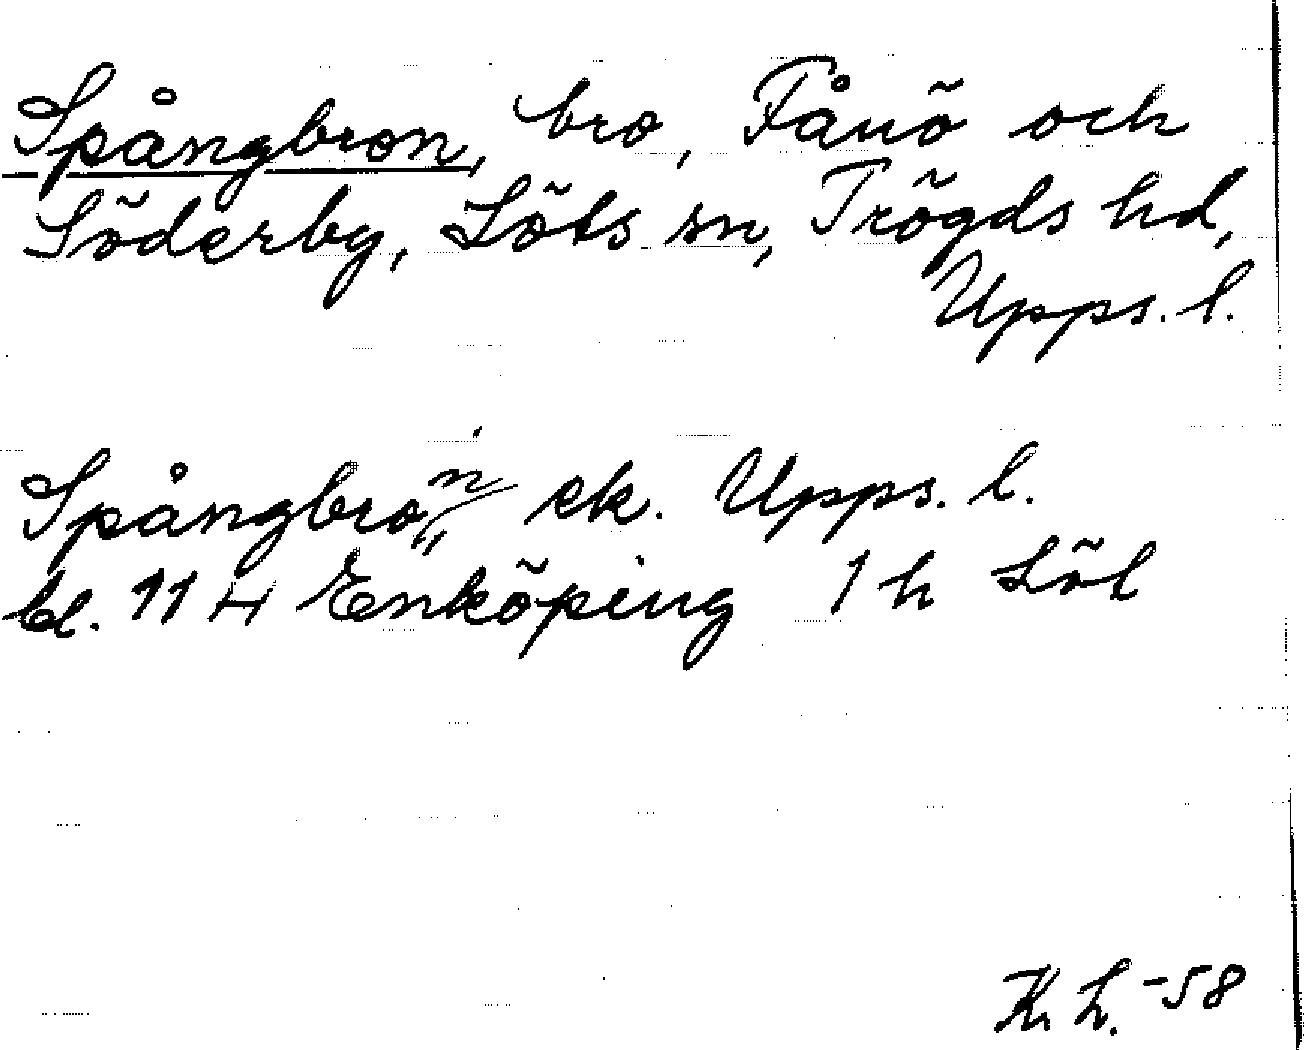 Spångbron, bro, Fånö och
Söderby, Löts sn, Trögds hd,
Upps. l.
Spångbron ek. Upps. l.
bl. 11 H Enköping 1 h Löt
K. L. -58